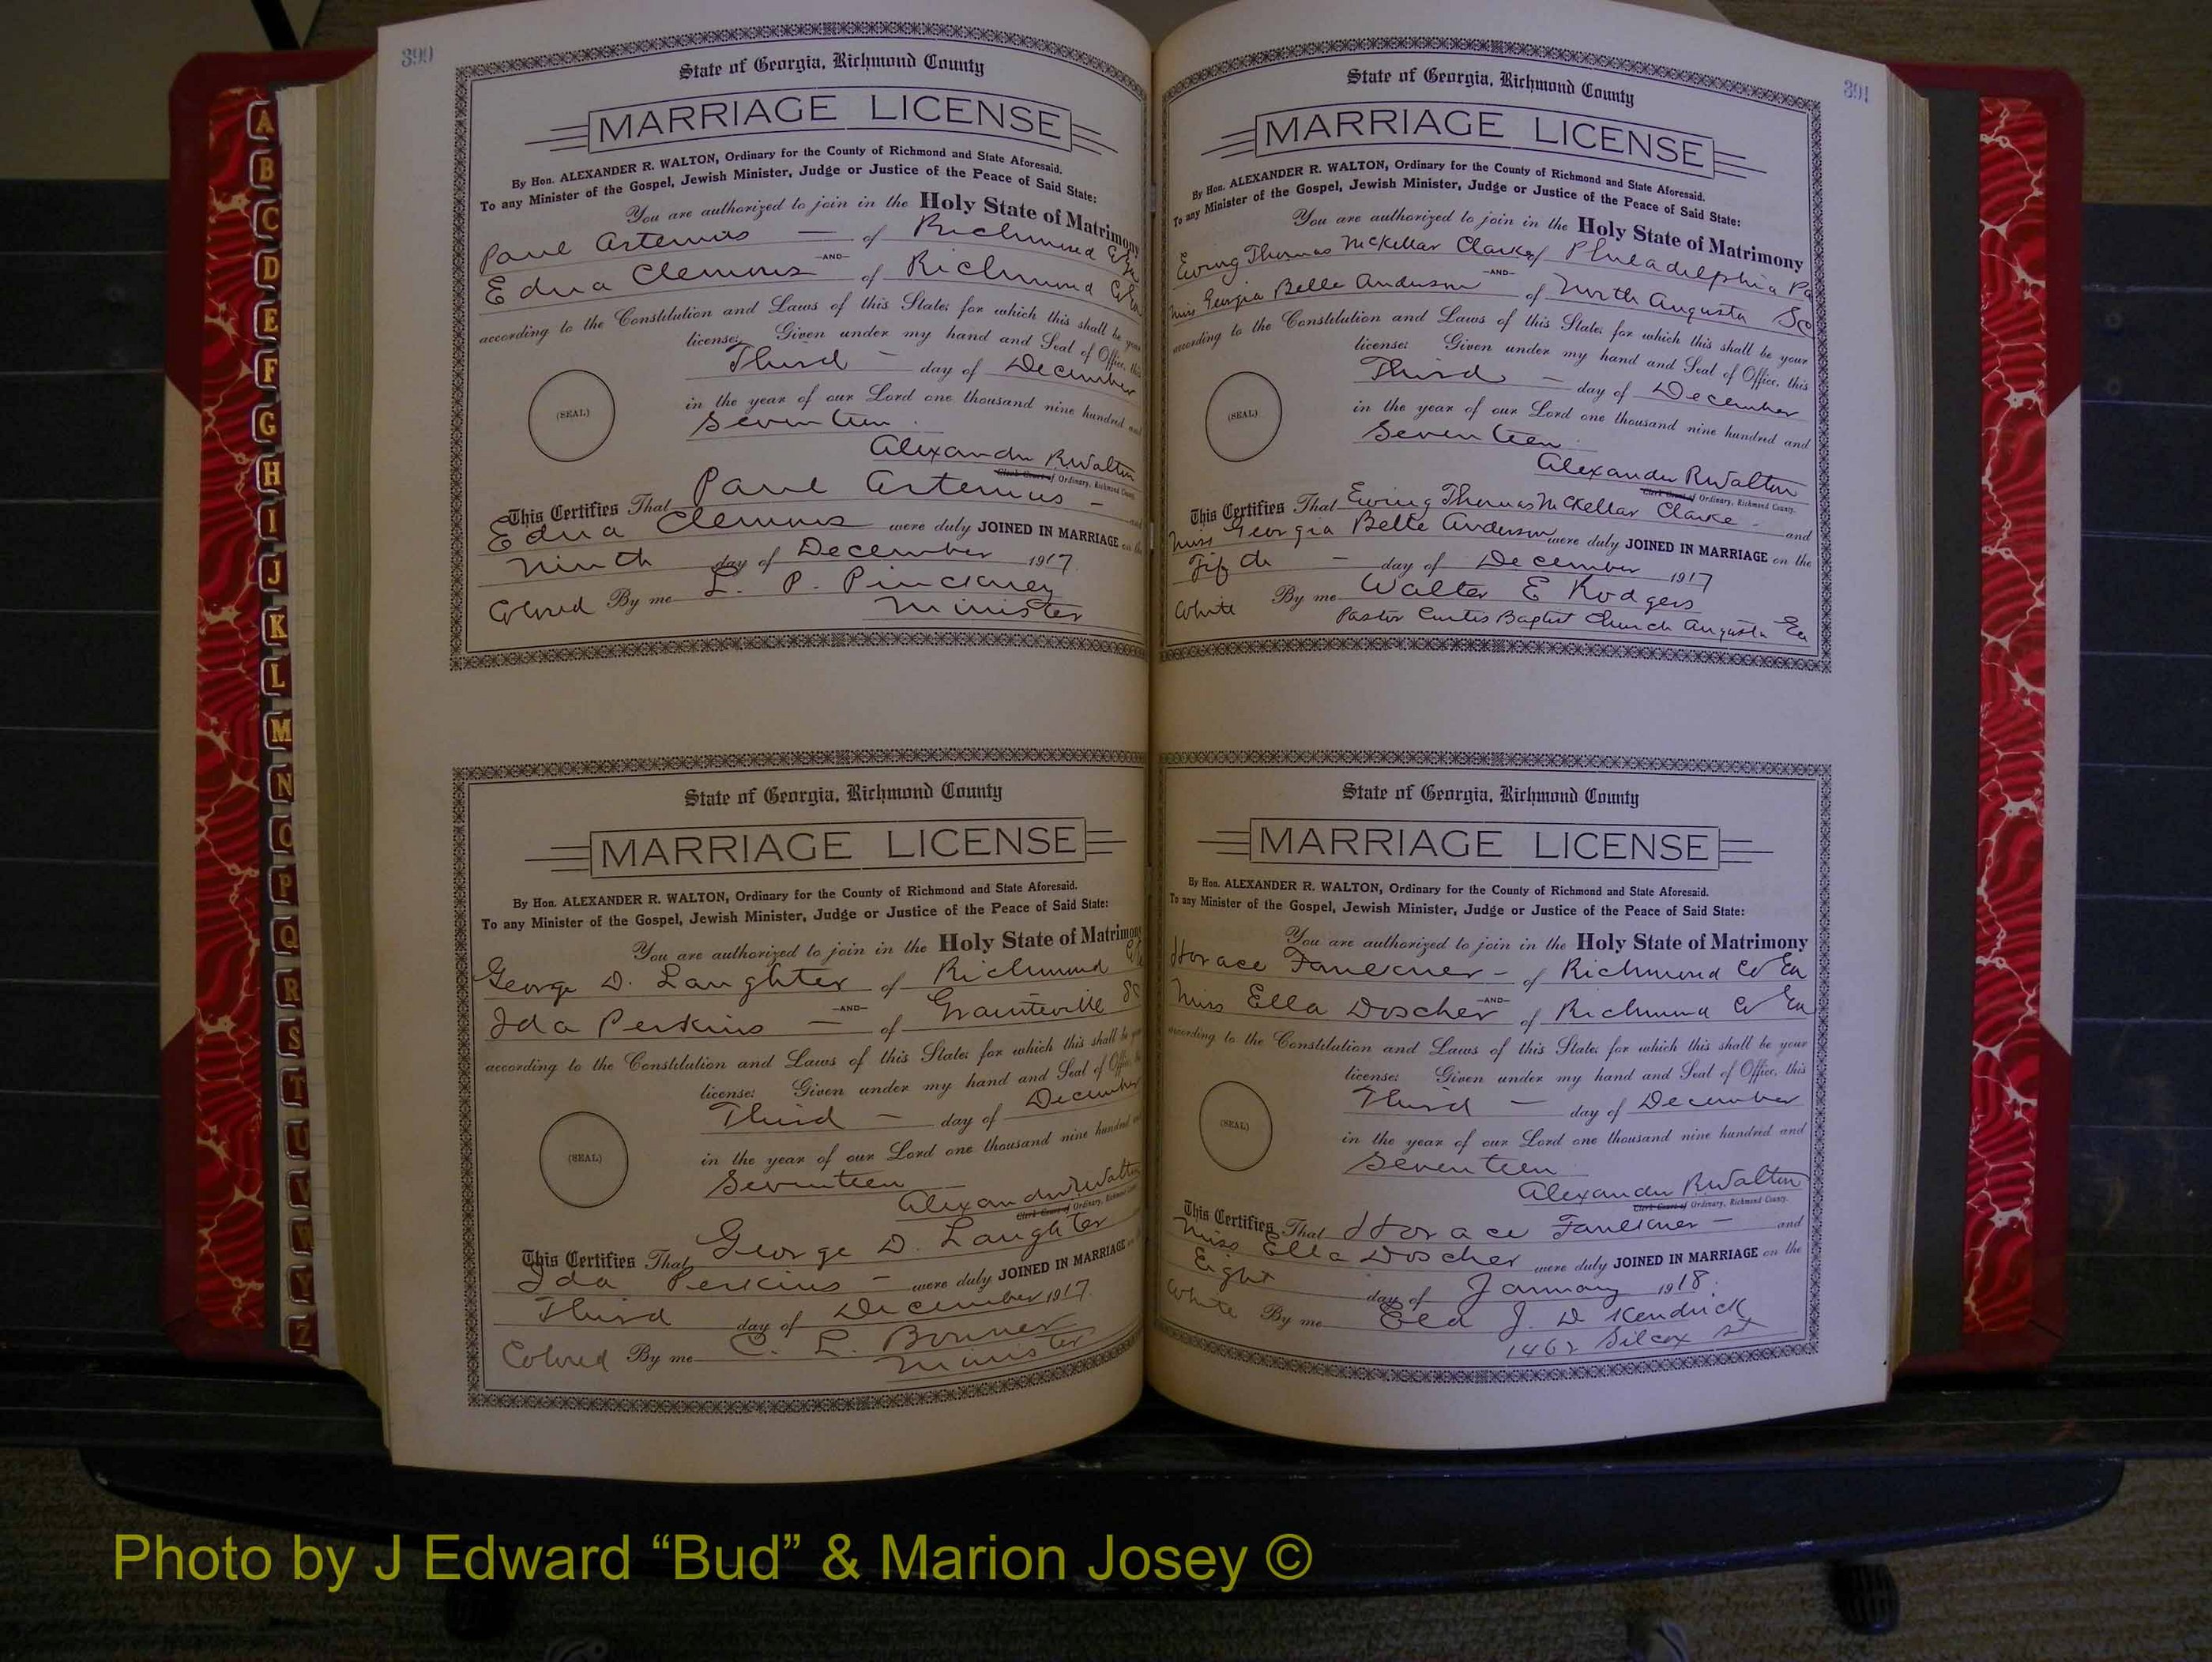 390
State of Georgia, Richmond County
MARRIAGE LICENSE
By Hon. ALEXANDER R. WALTON, Ordinary for the County of Richmond and State Aforesaid.
To any Minister of the Gospel, Jewish Minister, Judge or Justice of the Peace of Said State:
You are authorized to join in the Holy State of Matrimony
Paul Artemus — of Richmond Co Ga
—AND—
Edna Clemons of Richmond Co Ga
according to the Constitution and Laws of this State; for which this shall be your
license: Given under my hand and Seal of Office, this
Third — day of December
(SEAL)
in the year of our Lord one thousand nine hundred and
Seventeen
Alexander R Walton
Clerk Court of Ordinary, Richmond County
This Certifies That Paul Artemus — and
Edna Clemons were duly JOINED IN MARRIAGE on the
Ninth day of December 1917
Colored By me L. P. Pinckney
Minister
State of Georgia, Richmond County
MARRIAGE LICENSE
By Hon. ALEXANDER R. WALTON, Ordinary for the County of Richmond and State Aforesaid.
To any Minister of the Gospel, Jewish Minister, Judge or Justice of the Peace of Said State:
You are authorized to join in the Holy State of Matrimony
George D. Laughter of Richmond
—AND—
Ida Perkins — of Graniteville SC
according to the Constitution and Laws of this State; for which this shall be your
license: Given under my hand and Seal of Office, this
Third — day of December
(SEAL)
in the year of our Lord one thousand nine hundred and
Seventeen
Alexander R Walton
Clerk Court of Ordinary, Richmond County
This Certifies That George D. Laughter
Ida Perkins — were duly JOINED IN MARRIAGE on the
Third day of December 1917.
Colored By me C. L. Bonner
Minister
391
State of Georgia, Richmond County
MARRIAGE LICENSE
By Hon. ALEXANDER R. WALTON, Ordinary for the County of Richmond and State Aforesaid.
To any Minister of the Gospel, Jewish Minister, Judge or Justice of the Peace of Said State:
You are authorized to join in the Holy State of Matrimony
Ewing Thomas McKellar Clarke of Philadelphia Pa
—AND—
Miss Georgia Belle Anderson of North Augusta SC
according to the Constitution and Laws of this State; for which this shall be your
license: Given under my hand and Seal of Office, this
Third — day of December
(SEAL)
in the year of our Lord one thousand nine hundred and
Seventeen
Alexander R Walton
Clerk Court of Ordinary, Richmond County.
This Certifies That Ewing Thomas McKellar Clarke - and
Miss Georgia Belle Anderson were duly JOINED IN MARRIAGE on the
Fifth — day of December 1917
White By me Walter E Rodgers
Pastor Curtis Baptist Church Augusta Ga
State of Georgia, Richmond County
MARRIAGE LICENSE
By Hon. ALEXANDER R. WALTON, Ordinary for the County of Richmond and State Aforesaid.
To any Minister of the Gospel, Jewish Minister, Judge or Justice of the Peace of Said State:
You are authorized to join in the Holy State of Matrimony
Horace Faulkner — of Richmond Co Ga
—AND—
Miss Ella Doscher of Richmond Co Ga
according to the Constitution and Laws of this State; for which this shall be your
license: Given under my hand and Seal of Office, this
Third — day of December
(SEAL)
in the year of our Lord one thousand nine hundred and
Seventeen
Alexander R Walton
Clerk Court of Ordinary, Richmond County.
This Certifies That Horace Faulkner — and
Miss Ella Doscher were duly JOINED IN MARRIAGE on the
Eight day of January 1918.
White By me J. D Kendrick
1462 Silcox St
A
B
C
D
E
F
G
H
I
J
K
L
M
N
O
P
Q
R
S
T
U
V
W
Y
Z
Photo by J Edward “Bud” & Marion Josey ©